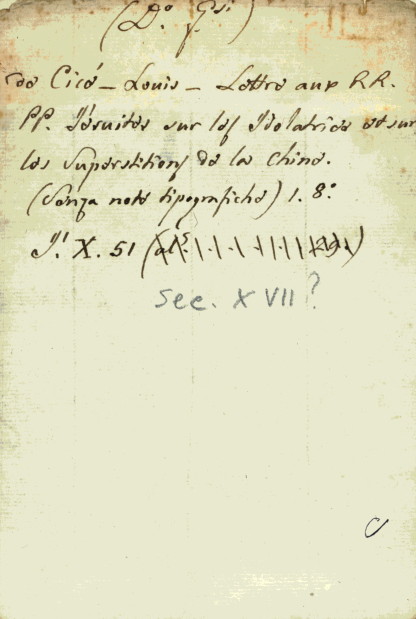 (D.º Gsi)
de Cicé - Louis - Lettre aux RR.
PP. Jésuites sur les Idolatries et sur
les Superstitions de la Chine.
(Senza note tipografiche) 1. 8.º
J.' X. 51
sec. XVII?